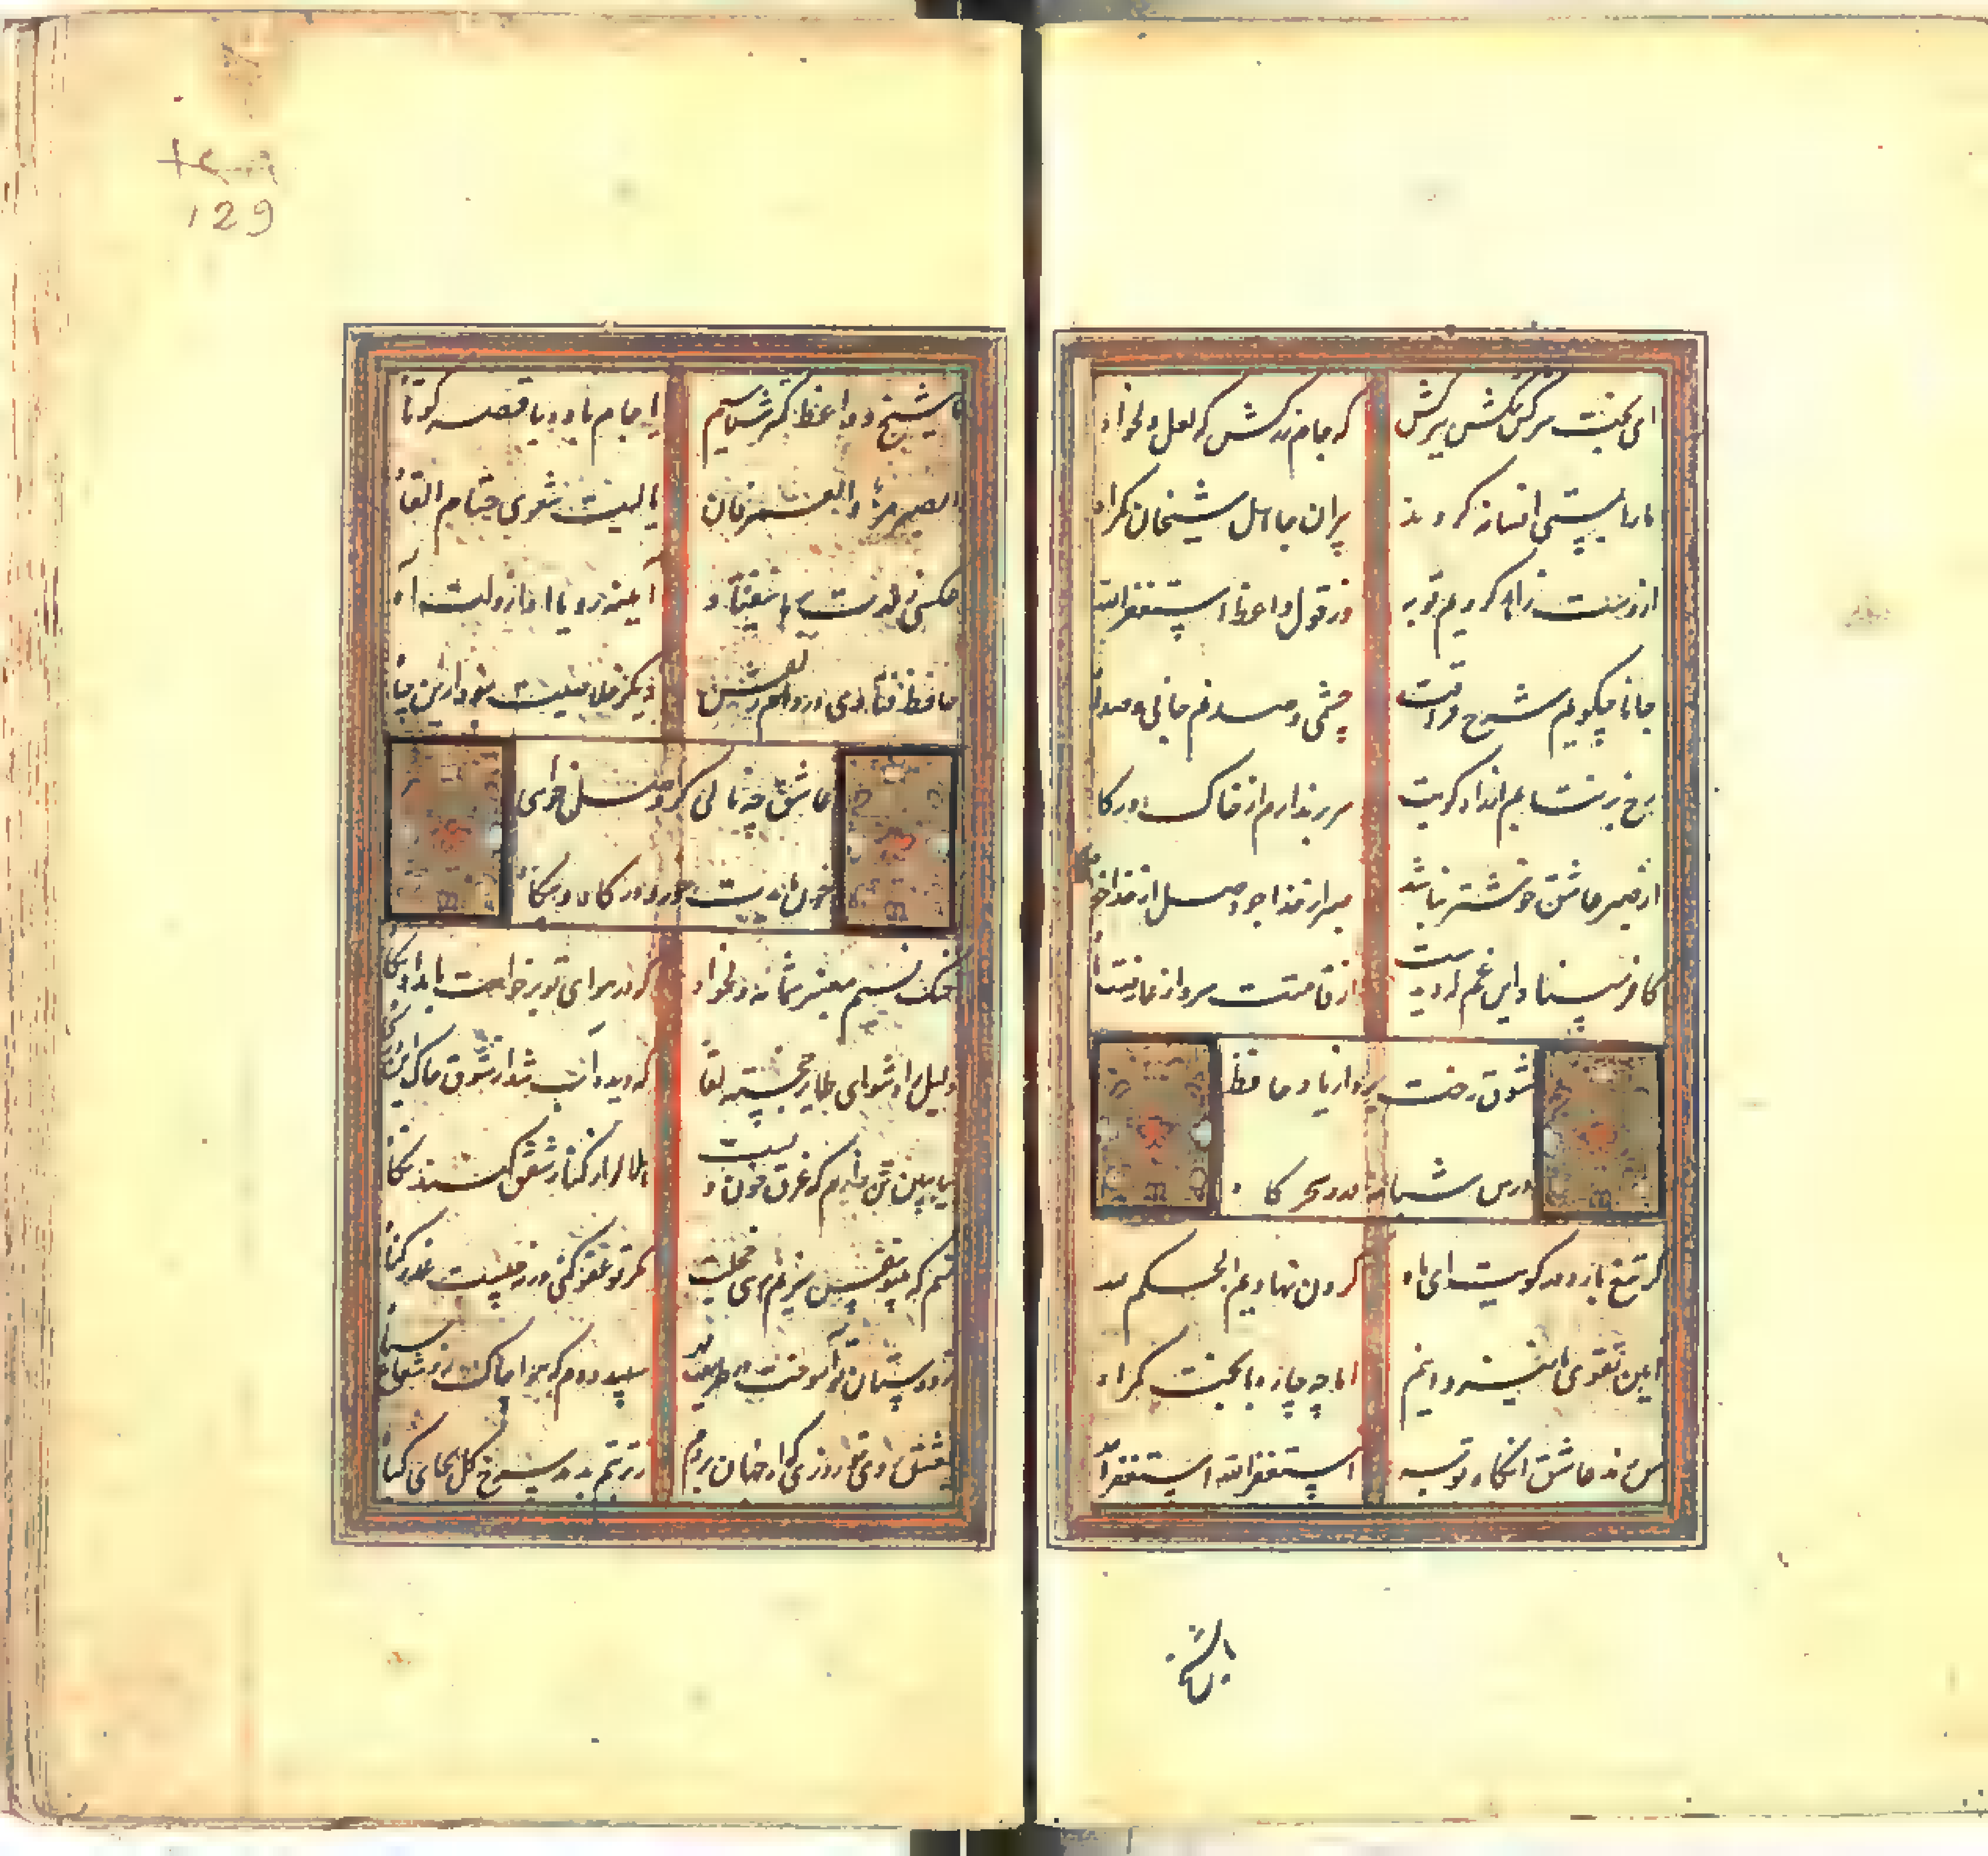 ای بخت سرکش تنگش ببرکش
که جام زرکش که لعل دلخواه
ما را بمستی افسانه کردند
پیران جاهل شیخان گمراه
از دست زاهد کردیم توبه
وز قول واعظ استغفر الله
جانا چگویم شرح فراقت
چشمی و صد نم جانی و صد آه
رخ برنتابم از راه کویت
سر برندارم از خاک درگاه
از صبر عاشق خوشتر نباشد
صبر از خدا خواه صبر از خدا خواه
کافر مبیناد این غم که دیدست
از قامتت سرو از عارضت ماه
شوق رخت برد از یاد حافظ
درس شبانه ورد سحرگاه
گر تیغ بارد در کوی ای ماه
گردن نهادیم الحکم لله
آیین تقوی ما نیز دانیم
اما چه چاره با بخت گمراه
من رند عاشق آنگاه توبه
استغفر الله استغفر الله
ما شیخ و واعظ کمتر شناسیم
یا جام باده یا قصه کوتاه
الصبر مر والعمر فان
یا لیت شعری حتام القاه
عکسی ز مهرت بر ما نیفتاد
آیینه رویا آه از دلت آه
حافظ
عاشق چه نالی گر وصل خواهی
خون بایدت خورد در گاه و بیگاه
خنک نسیم معنبر شمامه دلخواه
که در هوای تو برخاست بامداد پگاه
دلیل راه شو ای طایر خجسته لقا
که دیده آب شد از شوق خاک آن درگاه
ببین تن نزارم که غرق خون دلست
هلال را ز کنار شفق کنند نگاه
منم که بی تو نفس میزنم زهی خجلت
مگر تو عفو کنی ورنه چیست عذر گناه
ز دوستان تو آموخت در طریقت مهر
سپیده دم که هوا چاک زد شعار سیاه
بعشق روی تو روزی که از جهان بروم
ز تربتم بدمد سرخ گل بجای گیاه
129